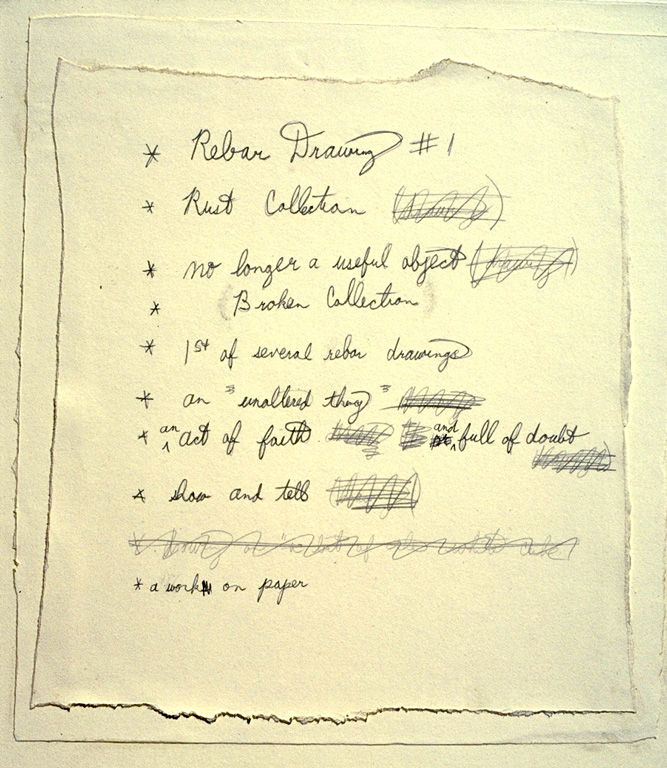 * Rebar Drawing #1
* Rust Collection
* no longer a useful object
* Broken Collection
* 1st of several rebar drawings
* an "unaltered thing"
* an act of faith and full of doubt
* show and tell
* a work on paper